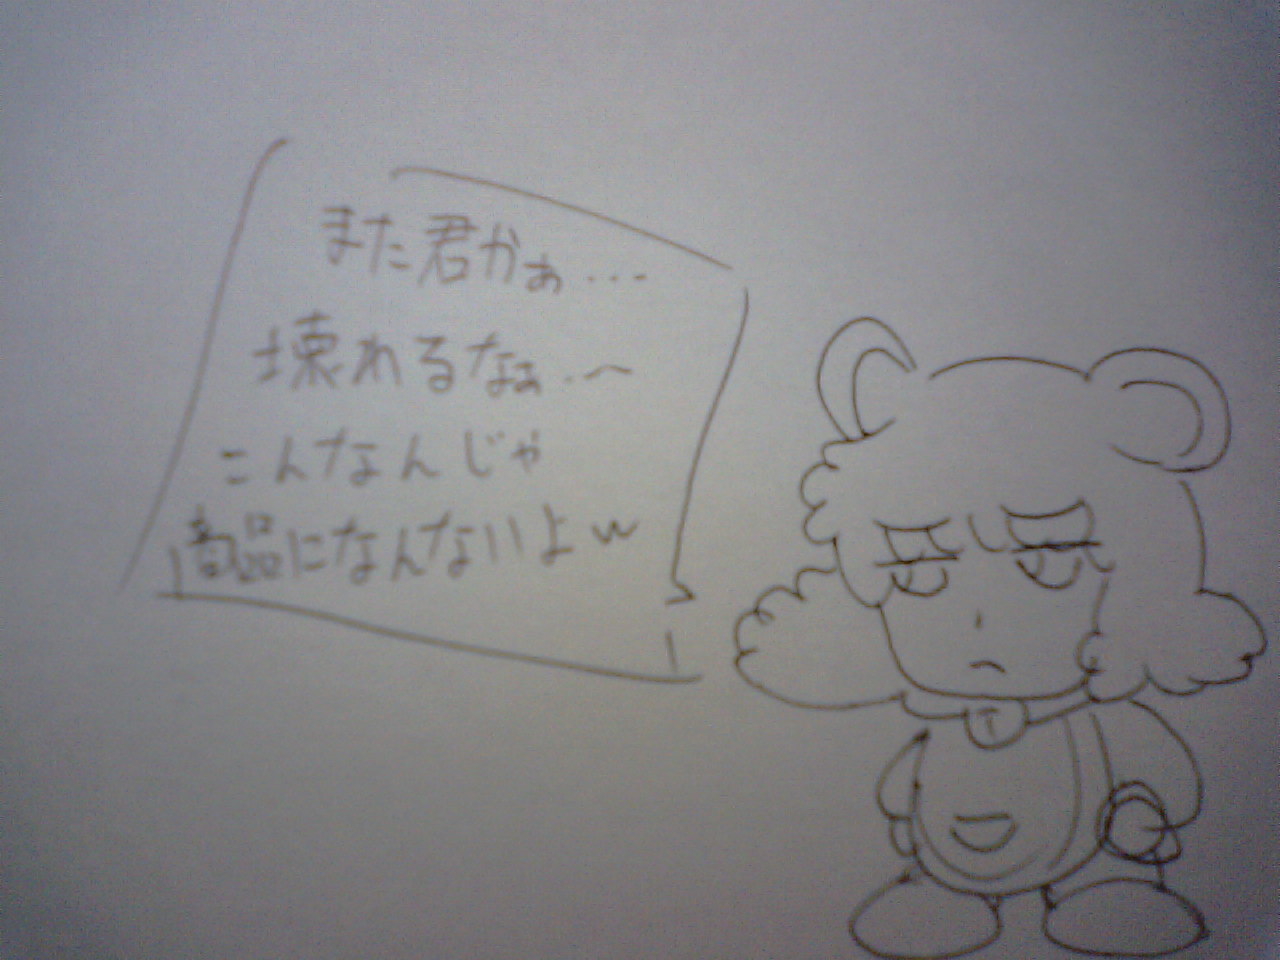 また君かぁ...
壊れるなぁ.〜
こんなんじゃ
商品になんないよw
T